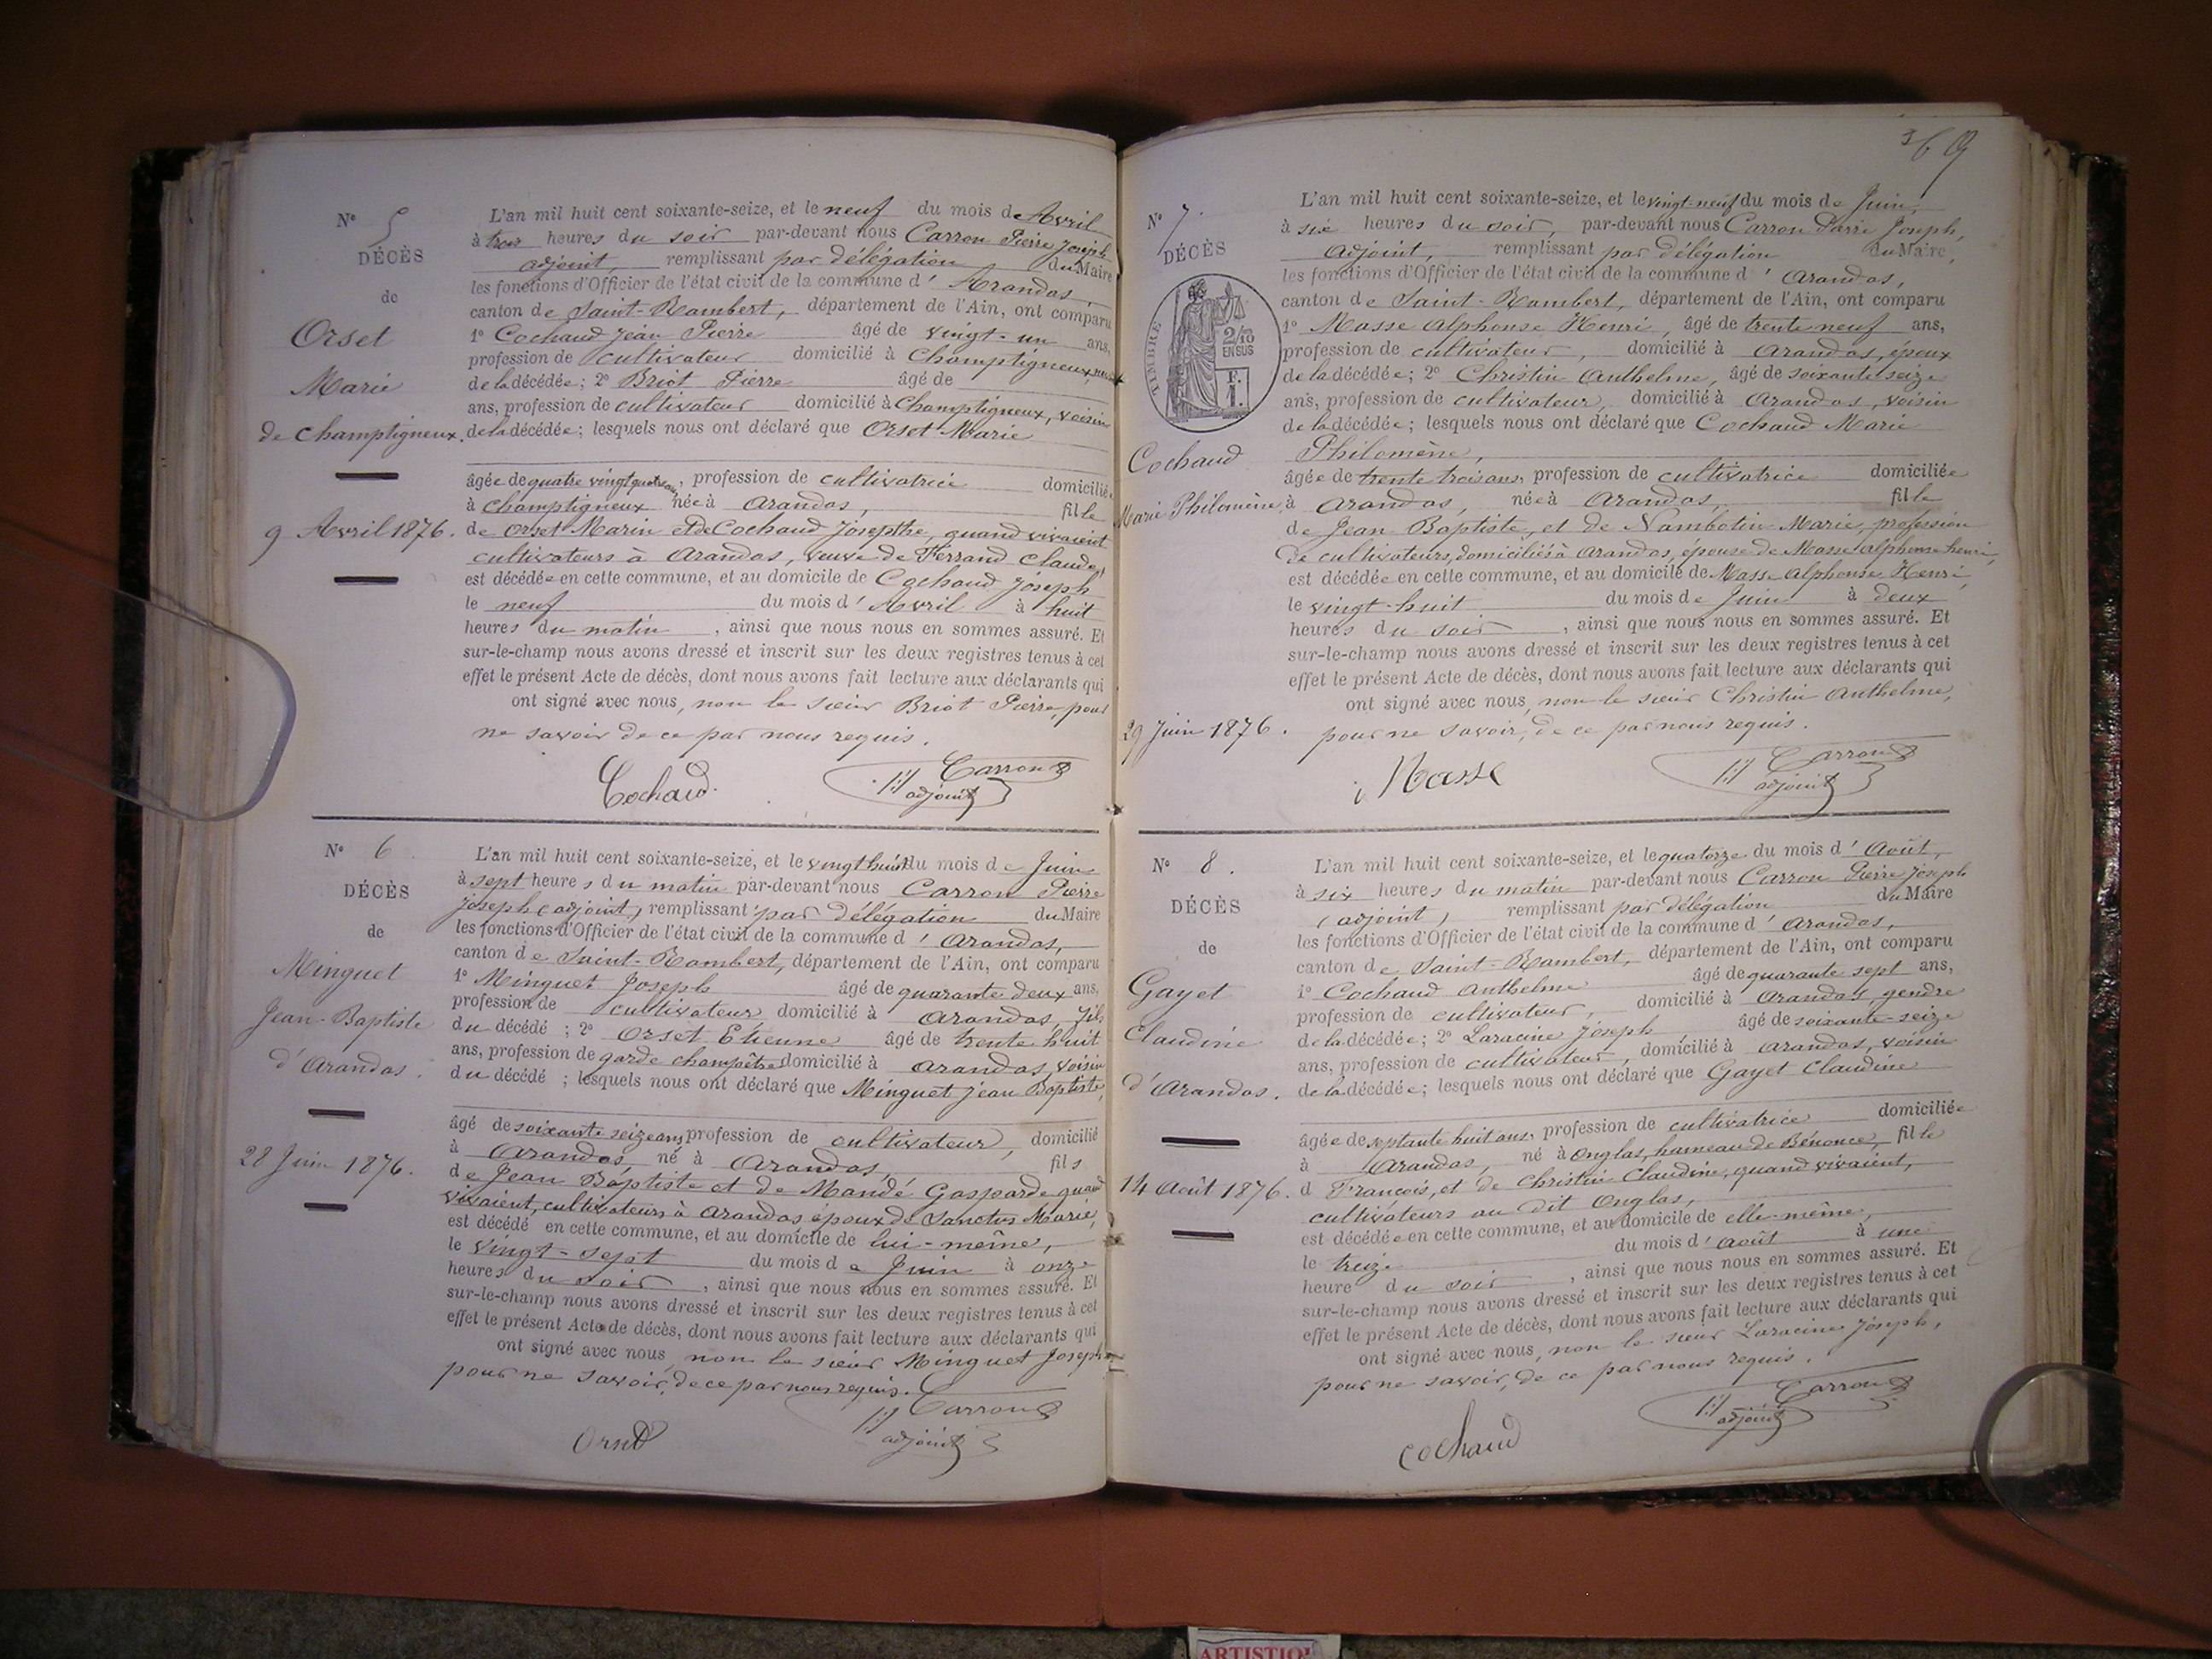 Nº 5
DÉCÈS
de
Orset
Marie
de Champtigneux.
9 Avril 1876.
L'an mil huit cent soixante-seize, et le neuf du mois de Avril
à trois heures du soir par-devant nous Carron Pierre Joseph
adjoint, remplissant par délégation du Maire
les fonctions d'Officier de l'état civil de la commune d' Arandas
canton de Saint-Rambert, département de l'Ain, ont comparu
1º Cochaud Jean Pierre âgé de vingt-un ans,
profession de cultivateur domicilié à Champtigneux,
de la décédée; 2º Briot Pierre âgé de
ans, profession de cultivateur domicilié à Champtigneux, voisin
de la décédée; lesquels nous ont déclaré que Orset Marie
âgée de quatre vingt quatre ans, profession de cultivatrice domiciliée
à Champtigneux née à Arandas, fille
de Orset Marin et de Cochaud Josepthe, quand vivaient
cultivateurs à Arandas, veuve de Ferrand Claude,
est décédée en cette commune, et au domicile de Cochaud Joseph
le neuf du mois d' Avril à huit
heures du matin, ainsi que nous nous en sommes assuré. Et
sur-le-champ nous avons dressé et inscrit sur les deux registres tenus à cet
effet le présent Acte de décès, dont nous avons fait lecture aux déclarants qui
ont signé avec nous, non le sieur Briot Pierre pour
ne savoir de ce par nous requis.
Cochaud.
Carron
adjoint
Nº 6
DÉCÈS
de
Minguet
Jean-Baptiste
d'Arandas.
28 Juin 1876.
L'an mil huit cent soixante-seize, et le vingt huit du mois de Juin
à sept heures du matin par-devant nous Carron Pierre
Joseph (adjoint) remplissant par délégation du Maire
les fonctions d'Officier de l'état civil de la commune d' Arandas,
canton de Saint-Rambert, département de l'Ain, ont comparu
1º Minguet Joseph âgé de quarante deux ans,
profession de cultivateur domicilié à Arandas, fils
du décédé ; 2º Orset Etienne âgé de trente huit
ans, profession de garde champêtre domicilié à Arandas, voisin
du décédé ; lesquels nous ont déclaré que Minguet Jean Baptiste,
âgé de soixante seize ans, profession de cultivateur, domicilié
à Arandas, né à Arandas, fils
de Jean Baptiste et de Mandé Gasparde quand
vivaient, cultivateurs à Arandas époux de Sanctus Marie,
est décédé en cette commune, et au domicile de lui-même,
le vingt-sept du mois de Juin à onze
heures du soir, ainsi que nous nous en sommes assuré. Et
sur-le-champ nous avons dressé et inscrit sur les deux registres tenus à cet
effet le présent Acte de décès, dont nous avons fait lecture aux déclarants qui
ont signé avec nous, non le sieur Minguet Joseph
pour ne savoir, de ce par nous requis.
Orset
Carron
adjoint
369
Nº 7.
DÉCÈS
TIMBRE
2/10
EN SUS
F.
1.
Cochaud
Marie Philomène,
29 Juin 1876.
L'an mil huit cent soixante-seize, et le vingt-neuf du mois de Juin,
à six heures du soir, par-devant nous Carron Pierre Joseph,
Adjoint, remplissant par délégation du Maire,
les fonctions d'Officier de l'état civil de la commune d' Arandas,
canton de Saint-Rambert, département de l'Ain, ont comparu
1º Masse Alphonse Henri, âgé de trente neuf ans,
profession de cultivateur, domicilié à Arandas, époux
de la décédée; 2º Christin Anthelme, âgé de soixante seize
ans, profession de cultivateur, domicilié à Arandas, voisin
de la décédée; lesquels nous ont déclaré que Cochaud Marie
Philomène,
âgée de trente trois ans, profession de cultivatrice domiciliée
à Arandas, née à Arandas, fille
de Jean Baptiste, et de Nambotin Marie, profession
de cultivateurs, domiciliés à Arandas, épouse de Masse Alphonse henri,
est décédée en cette commune, et au domicile de Masse Alphonse Henri,
le vingt-huit du mois de Juin à deux
heures du soir, ainsi que nous nous en sommes assuré. Et
sur-le-champ nous avons dressé et inscrit sur les deux registres tenus à cet
effet le présent Acte de décès, dont nous avons fait lecture aux déclarants qui
ont signé avec nous, non le sieur Christin Anthelme,
pour ne savoir, de ce par nous requis.
Masse
Carron
adjoint
Nº 8.
DÉCÈS
de
Gayet
Claudine
d'Arandas.
14 Août 1876.
L'an mil huit cent soixante-seize, et le quatorze du mois d' Août,
à six heures du matin par-devant nous Carron Pierre Joseph
(adjoint) remplissant par délégation du Maire
les fonctions d'Officier de l'état civil de la commune d' Arandas,
canton de Saint-Rambert, département de l'Ain, ont comparu
1º Cochaud Anthelme âgé de quarante sept ans,
profession de cultivateur, domicilié à Arandas, gendre
de la décédée; 2º Laracine Joseph âgé de soixante-seize
ans, profession de cultivateur, domicilié à Arandas, voisin
de la décédée; lesquels nous ont déclaré que Gayet Claudine
âgée de septante huit ans, profession de cultivatrice domiciliée
à Arandas, né à Onglas, hameau de Bénonce, fille
d François, et de Christin Claudine, quand vivaient,
cultivateurs au dit Onglas,
est décédée en cette commune, et au domicile de elle-même,
le treize du mois d' Août à une
heure du soir, ainsi que nous nous en sommes assuré. Et
sur-le-champ nous avons dressé et inscrit sur les deux registres tenus à cet
effet le présent Acte de décès, dont nous avons fait lecture aux déclarants qui
ont signé avec nous, non le sieur Laracine Joseph,
pour ne savoir, de ce par nous requis.
Cochaud
Carron
adjoint